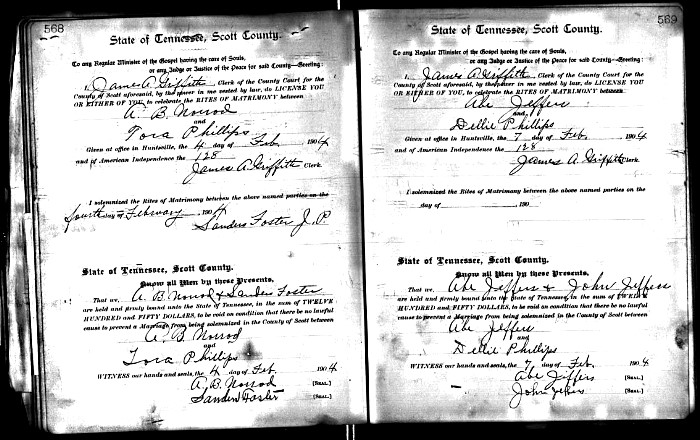 568
State of Tennessee, Scott County.
To any Regular Minister of the Gospel having the care of Souls,
or any Judge or Justice of the Peace for said County—Greeting:
I, James A Griffith, Clerk of the County Court for the
County of Scott aforesaid, by the power in me vested by law, do LICENSE YOU
OR EITHER OF YOU, to celebrate the RITES OF MATRIMONY between
A. B. Norrod
and
Tora Phillips
Given at office in Huntsville, the 4 day of Feb. 1904
and of American Independence the 128
James A. Griffith Clerk.
I solemnized the Rites of Matrimony between the above named parties on the
fourth day of February, 1904
Sanders Foster J. P.
State of Tennessee, Scott County.
Know all Men by these Presents,
That we, A. B. Norrod & Sanders Foster
are held and firmly bound unto the State of Tennessee, in the sum of TWELVE
HUNDRED AND FIFTY DOLLARS, to be void on condition that there be no lawful
cause to prevent a Marriage from being solemnized in the County of Scott between
A. B. Norrod
and
Tora Phillips
WITNESS our hands and seals, the 4 day of Feb. 1904
A. B. Norrod [SEAL.]
Sanders Foster [SEAL.]
569
State of Tennessee, Scott County.
To any Regular Minister of the Gospel having the care of Souls,
or any Judge or Justice of the Peace for said County—Greeting:
I, James A Griffith, Clerk of the County Court for the
County of Scott aforesaid, by the power in me vested by law, do LICENSE YOU
OR EITHER OF YOU, to celebrate the RITES OF MATRIMONY between
Abe Jeffers
and
Dellie Phillips
Given at office in Huntsville, the 7 day of Feb. 1904
and of American Independence the 128
James A. Griffith Clerk.
I solemnized the Rites of Matrimony between the above named parties on the
day of , 190
State of Tennessee, Scott County.
Know all Men by these Presents,
That we, Abe Jeffers & John Jeffers
are held and firmly bound unto the State of Tennessee, in the sum of TWELVE
HUNDRED AND FIFTY DOLLARS, to be void on condition that there be no lawful
cause to prevent a Marriage from being solemnized in the County of Scott between
Abe Jeffers
and
Dellie Phillips
WITNESS our hands and seals, the 7 day of Feb. 1904
Abe Jeffers [SEAL.]
John Jeffers [SEAL.]